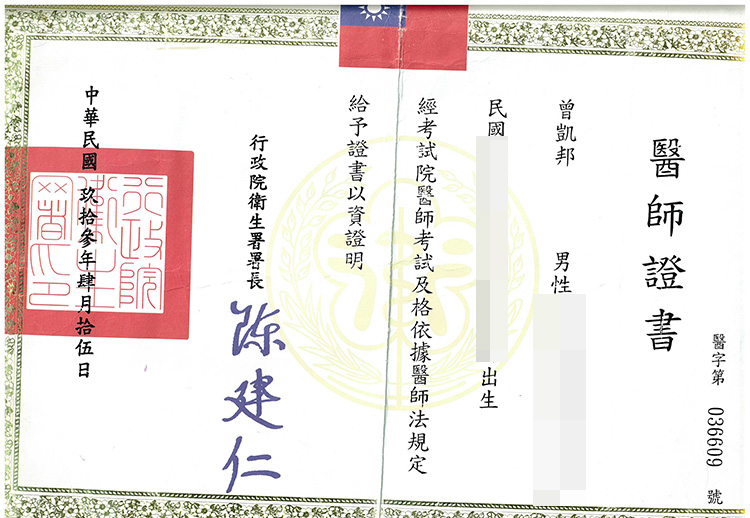 醫師證書
醫字第 036609 號
曾凱邦 男性
民國 出生
經考試院醫師考試及格依據醫師法規定
給予證書以資證明
行政院衛生署署長
陳建仁
中華民國玖拾參年肆月拾伍日
行政院
衛生
署印